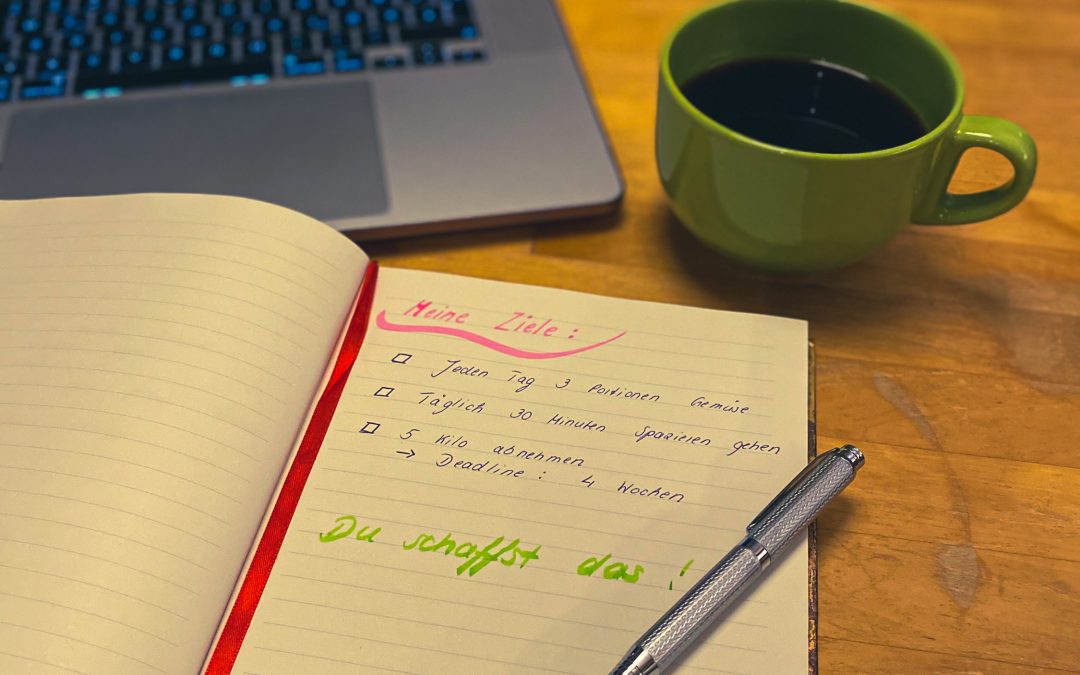 Meine Ziele:
Jeden Tag 3 Portionen Gemüse
Täglich 30 Minuten Spazieren gehen
5 Kilo abnehmen
→ Deadline: 4 Wochen
Du schaffst das!